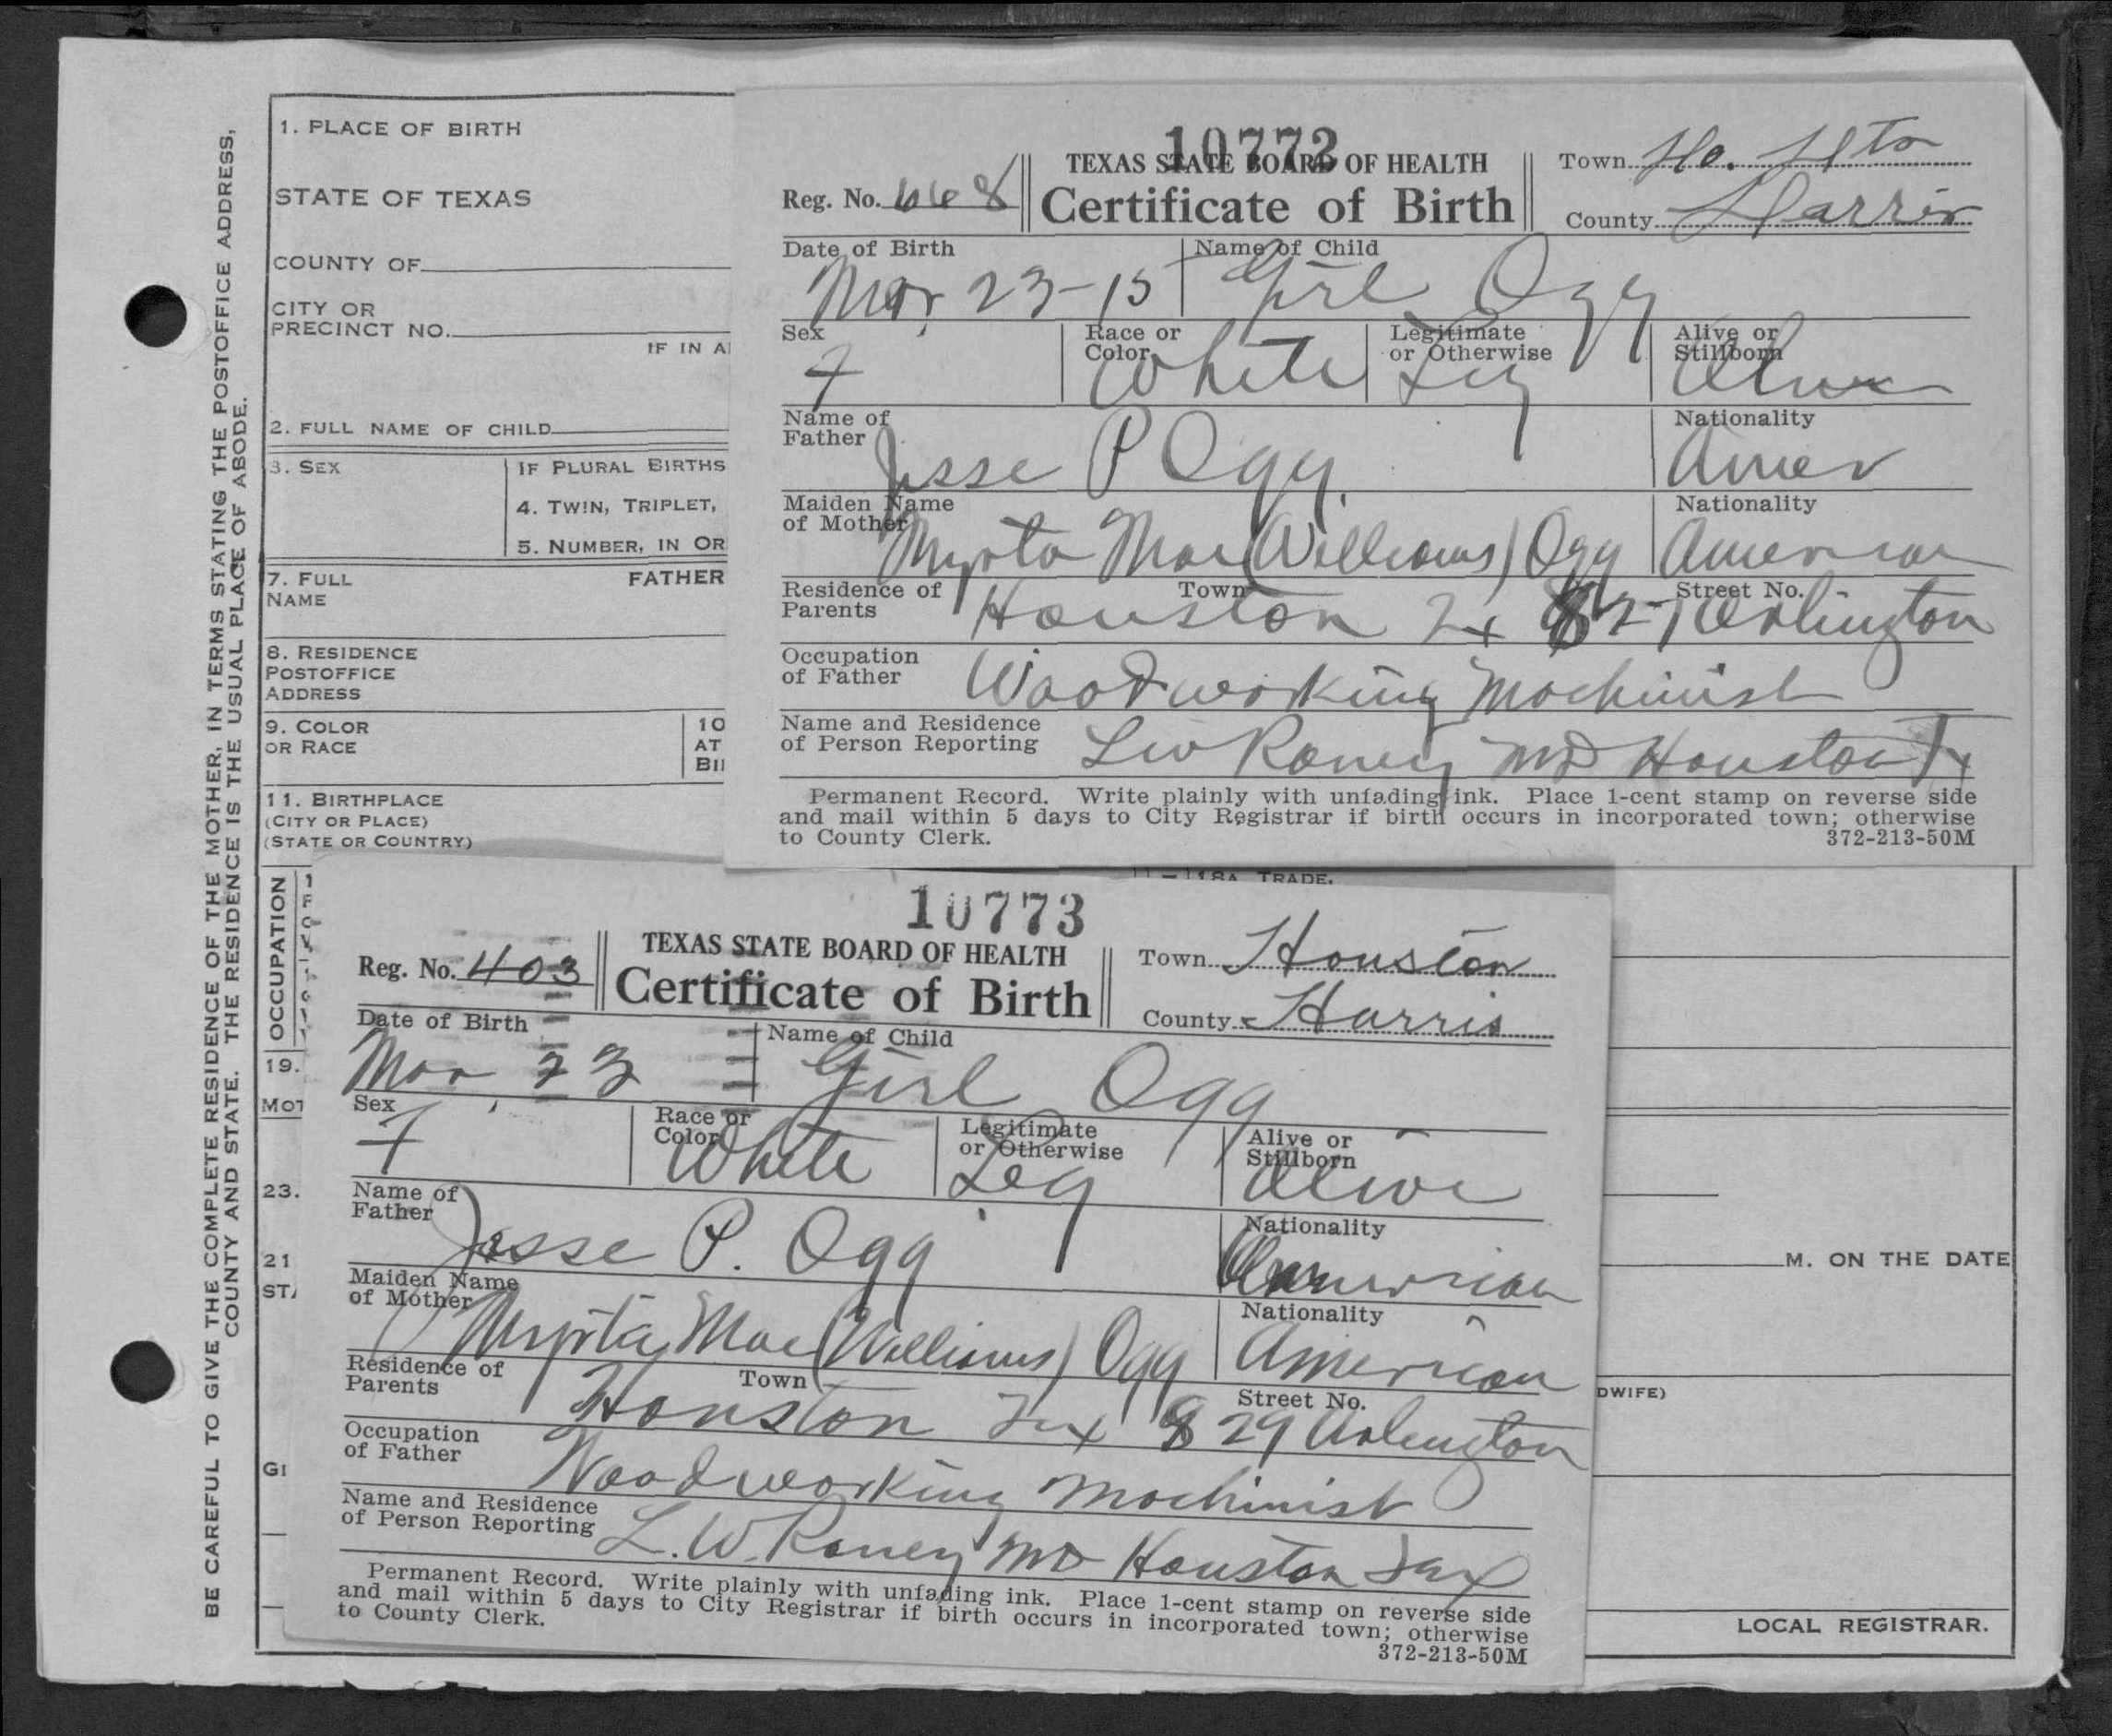 BE CAREFUL TO GIVE THE COMPLETE RESIDENCE OF THE MOTHER, IN TERMS STATING THE POSTOFFICE ADDRESS,
COUNTY AND STATE. THE RESIDENCE IS THE USUAL PLACE OF ABODE.
1. PLACE OF BIRTH
STATE OF TEXAS
COUNTY OF
CITY OR
PRECINCT NO.
IF IN A
2. FULL NAME OF CHILD
3. SEX
IF PLURAL BIRTHS
4. TWIN, TRIPLET,
5. NUMBER, IN OR
7. FULL FATHER
NAME
8. RESIDENCE
POSTOFFICE
ADDRESS
9. COLOR
OR RACE
10
AT
BI
11. BIRTHPLACE
(CITY OR PLACE)
(STATE OR COUNTRY)
10772
Reg. No. 668
TEXAS STATE BOARD OF HEALTH
Certificate of Birth
Town Ho. Hts
County Harris
Date of Birth Name of Child
Mar, 23-15 Girl Ogg
Sex Race or Color Legitimate or Otherwise Alive or Stillborn
F White Leg Alive
Name of Father Nationality
Jesse P Ogg. Amer
Maiden Name of Mother Nationality
Myrta Mae (Williams) Ogg American
Residence of Parents Town Street No.
Houston Tx Arlington
Occupation of Father Woodworking Machinist
Name and Residence of Person Reporting LW Raney MD Houston Tx
Permanent Record. Write plainly with unfading ink. Place 1-cent stamp on reverse side
and mail within 5 days to City Registrar if birth occurs in incorporated town; otherwise
to County Clerk. 372-213-50M
18A TRADE.
OCCUPATION
10773
Reg. No. 403
TEXAS STATE BOARD OF HEALTH
Certificate of Birth
Town Houston
County Harris
Date of Birth Name of Child
Mar, 23 Girl Ogg
Sex Race or Color Legitimate or Otherwise Alive or Stillborn
F White Leg Alive
Name of Father Nationality
Jesse P. Ogg American
Maiden Name of Mother Nationality
Myrta Mae (Williams) Ogg American
Residence of Parents Town Street No.
Houston Tex 829 Arlington
Occupation of Father Woodworking Machinist
Name and Residence of Person Reporting L. W. Raney MD Houston Tex
Permanent Record. Write plainly with unfading ink. Place 1-cent stamp on reverse side
and mail within 5 days to City Registrar if birth occurs in incorporated town; otherwise
to County Clerk.
372-213-50M
19.
MOT
23.
21
STA
GI
M. ON THE DATE
DWIFE)
LOCAL REGISTRAR.